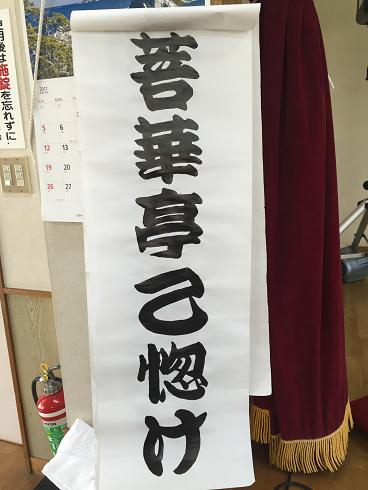 菩華亭乙惚け
用後は施錠を忘れずに・
2017
5 6
12 13
19 20
26 27